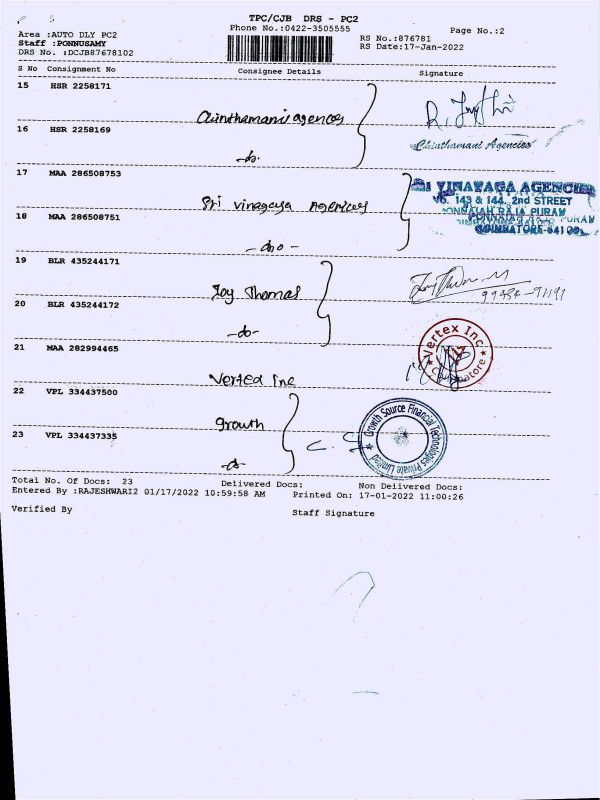 TPC/CJB DRS - PC2
Phone No.:0422-3505555
Page No.:2
Area :AUTO DLY PC2
Staff :PONNUSAMY
DRS No. :DCJB87678102
RS No.:876781
RS Date:17-Jan-2022
S No Consignment No Consignee Details Signature
15 HSR 2258171
Chinthamani agencies
16 HSR 2258169
Chinthamani Agencies
-do-
17 MAA 286508753
Sri vinayaga Agencies
SRI VINAYAGA AGENCIES
No. 143 & 144, 2nd STREET
PONNAIAH RAJA PURAM
COIMBATORE-64100
18 MAA 286508751
-do-
19 BLR 435244171
Joy Thomas
20 BLR 435244172
-do-
21 MAA 282994465
Vertex Inc
Coimbatore
Vertex Inc
22 VPL 334437500
Growth
Growth Source Financial Technologies Private Limited
23 VPL 334437335
-do-
Total No. Of Docs: 23 Delivered Docs: Non Delivered Docs:
Entered By :RAJESHWARI2 01/17/2022 10:59:58 AM Printed On: 17-01-2022 11:00:26
Verified By Staff Signature